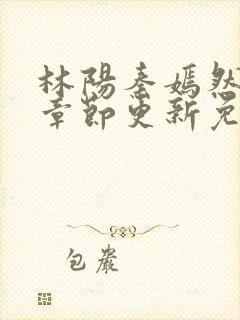 林陽秦嫣然
章節更新免
包嚴